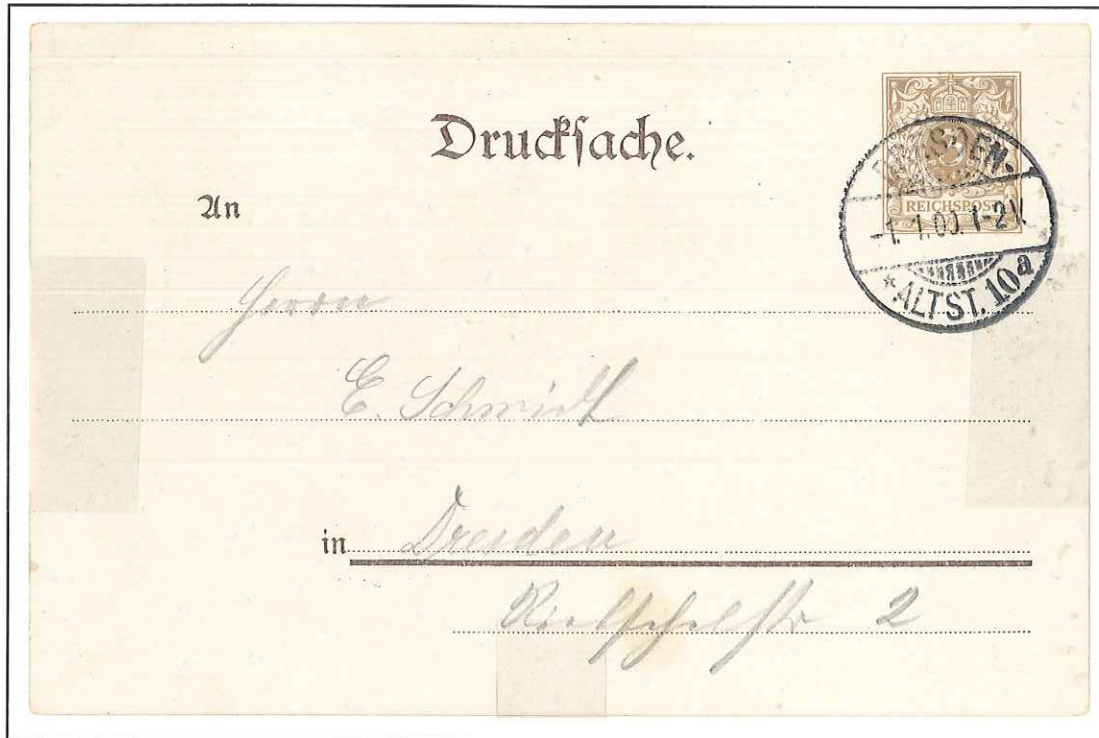 Drucksache.
3
REICHSPOST
DRESDEN-
-1. 1.00. 1-2V.
*ALTST. 10a
An
Herrn
E. Schmidt
in Dresden
Rietschelstr 2